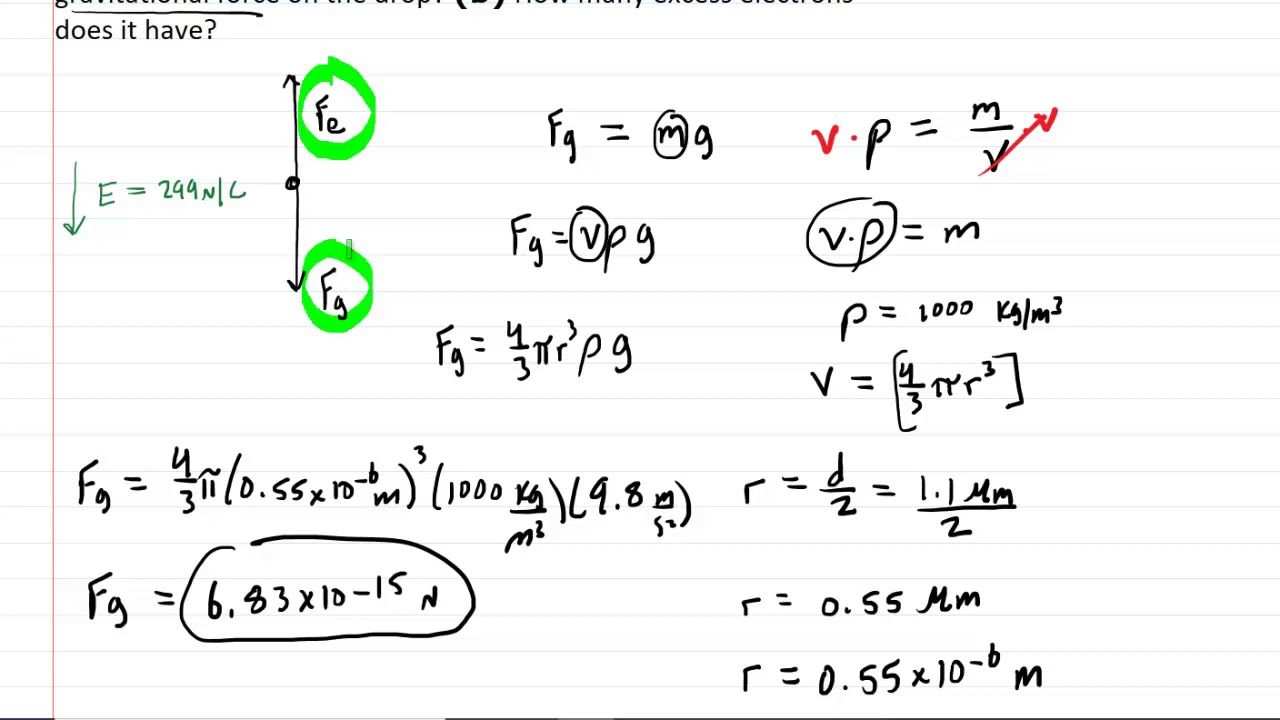 gravitational force on the drop? (b) How many excess electrons
does it have?
Fe
E = 299 N/C
Fg
Fg = mg
v · ρ = m/v · v
Fg = vρg
v·ρ = m
ρ = 1000 kg/m³
Fg = 4/3 πr³ρg
V = [4/3 πr³]
Fg = 4/3 π(0.55×10⁻⁶m)³(1000 kg/m³)(9.8 m/s²)
r = d/2 = 1.1 μm/2
Fg = 6.83×10-15 N
r = 0.55 μm
r = 0.55×10⁻⁶ m